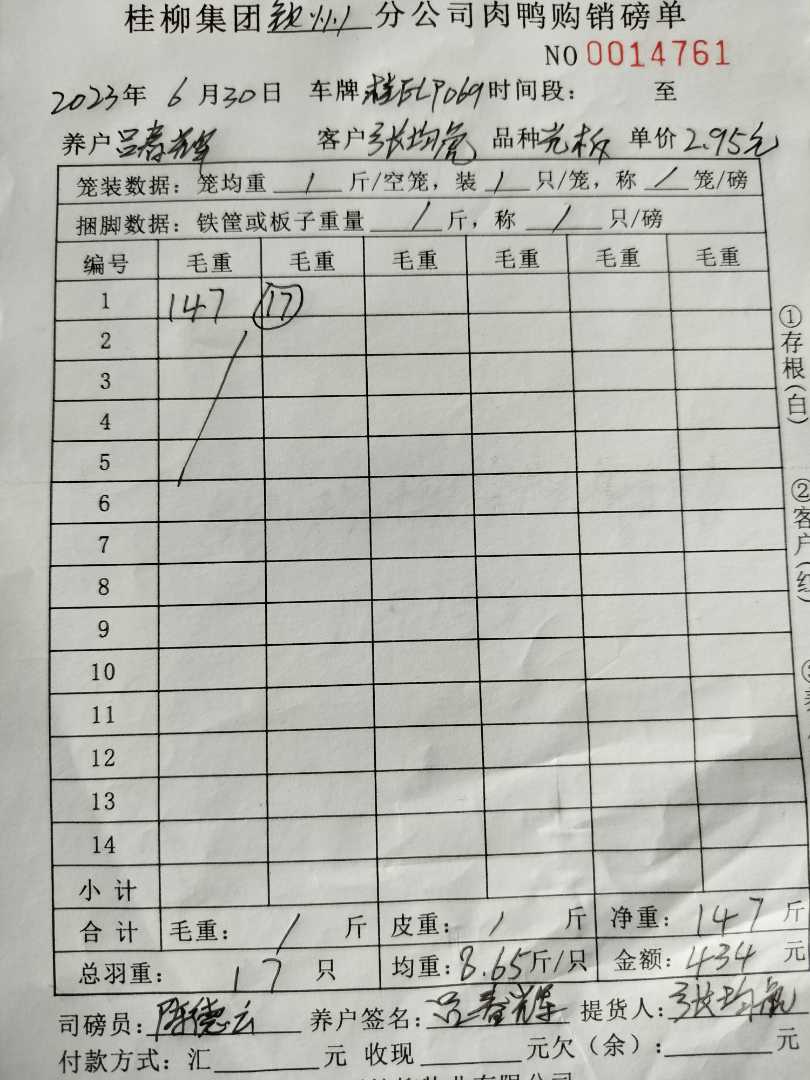 桂柳集团钦州分公司肉鸭购销磅单
NO 0014761
2023年 6月30日 车牌桂ELP069时间段: 至
养户吕春辉 客户张均虎 品种光板 单价2.95元
笼装数据:笼均重 / 斤/空笼,装 / 只/笼,称 / 笼/磅
捆脚数据:铁筐或板子重量 / 斤,称 / 只/磅
编号 毛重 毛重 毛重 毛重 毛重 毛重
1 147 17
2
3
4
5
6
7
8
9
10
11
12
13
14
小计
合计 毛重: / 斤 皮重: / 斤 净重: 147 斤
总羽重: 17 只 均重: 8.65斤/只 金额: 434 元
司磅员: 陈德云 养户签名: 吕春辉 提货人: 张均虎
付款方式:汇 元 收现 元欠(余): 元
①存根(白)
②客户(红)